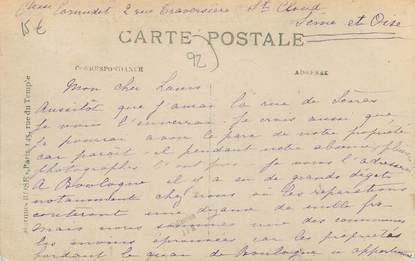 Chez Cornudet, 2 rue Traversière St Cloud
Seine et Oise
15€
CARTE POSTALE
92
CORRESPONDANCE
ADRESSE
Mon cher Louis
Aussitôt que j'aurai la vue de Sèvres
je vous l'enverrai. Je crois aussi que
je pourrai avoir le parc de notre propriété
car paraît-il pendant notre absence plusieurs
photographes l'ont pris. Je vous l'adresserai
A Boulogne il y a eu de grands dégâts
notamment chez nous où les réparations
coûteront une dizaine de mille frs
mais nous sommes une des communes
les moins éprouvées car les propriétés
bordant le quai de Boulogne
rue du Temple